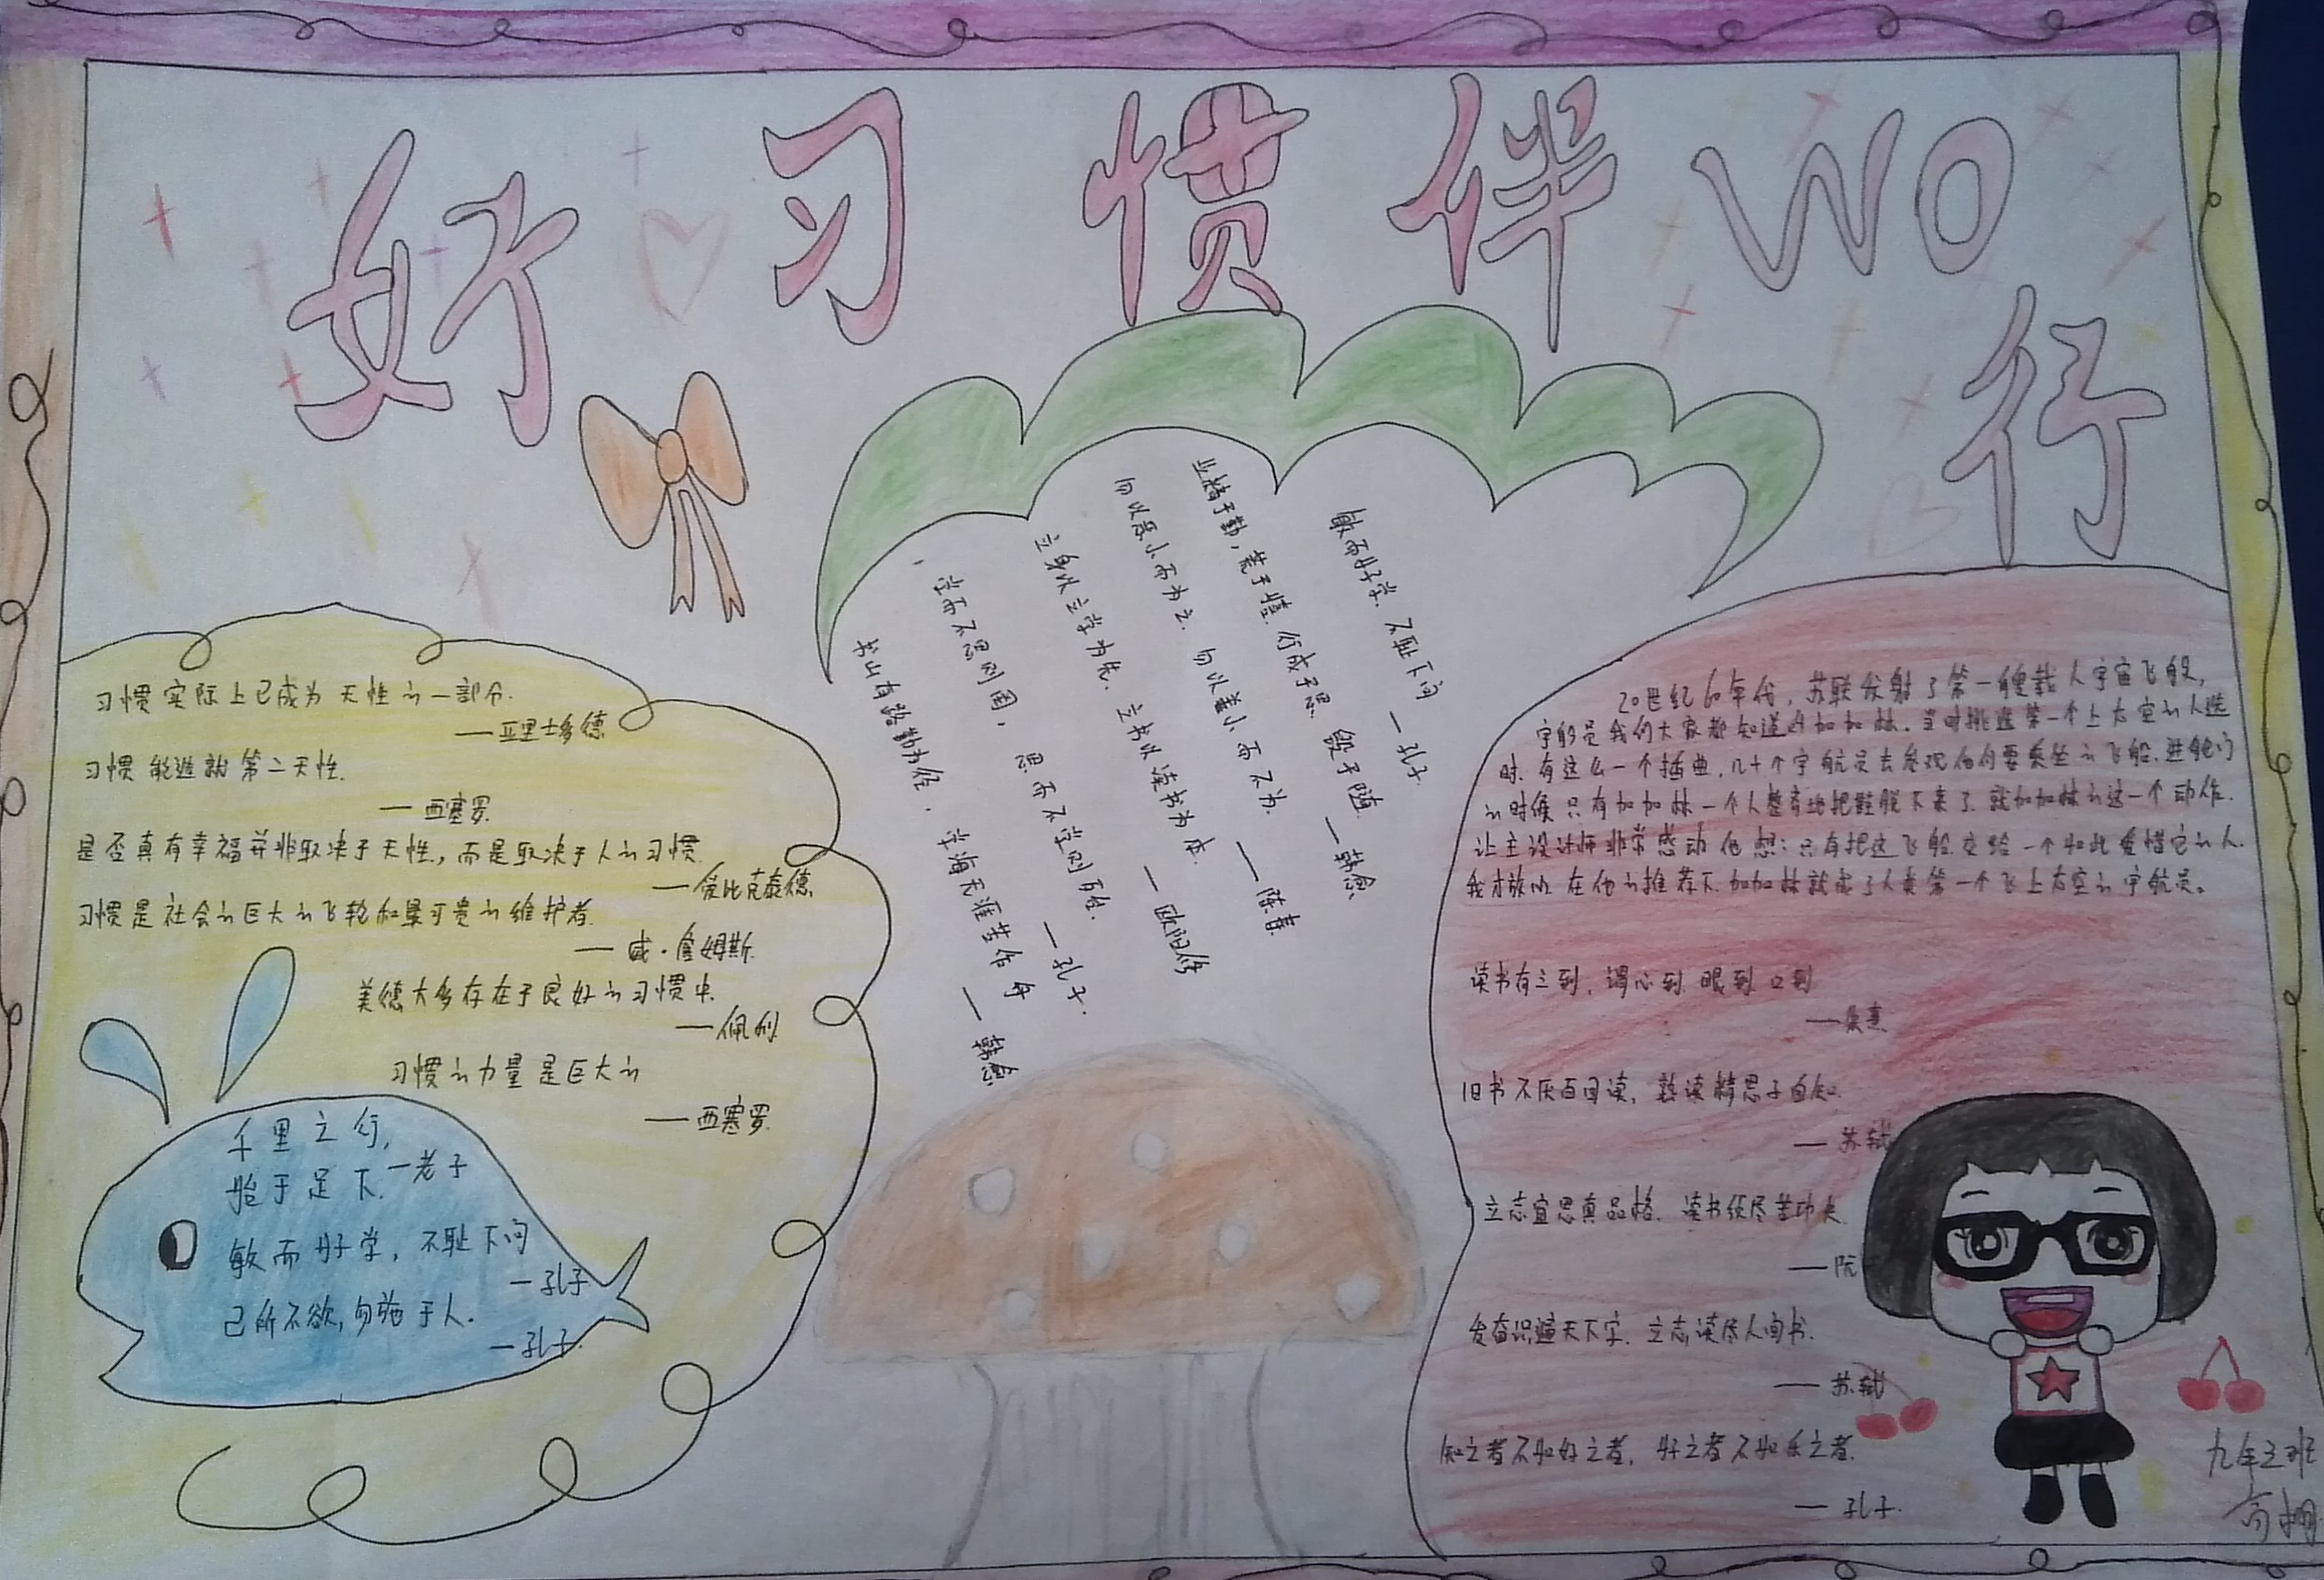 好习惯伴WO
行
习惯实际上已成为天性的一部分.
——亚里士多德
习惯能造就第二天性.
——西塞罗
是否真有幸福并非取决于天性,而是取决于人的习惯.
——爱比克泰德
习惯是社会的巨大的飞轮和最可贵的维护者.
——威·詹姆斯.
美德大多存在于良好的习惯中.
——佩利
习惯的力量是巨大的
——西塞罗.
千里之行,
始于足下.—老子
敏而好学,不耻下问
—孔子
己所不欲,勿施于人.
—孔子.
书山有路勤为径,学海无涯苦作舟
—韩愈
学而不思则罔,思而不学则殆.
—孔子.
立身以立学为先.立书以读书为本.
—欧阳修
勿以恶小而为之.勿以善小而不为.
—陈寿
业精于勤,荒于嬉.行成于思.毁于随.
—韩愈
敏而好学.不耻下问
—孔子.
20世纪60年代,苏联发射了第一艘载人宇宙飞船,
宇航员我们大家都知道叫加加林.当时挑选第一个上太空的人选
时.有这么一个插曲,几十个宇航员去参观他们要乘坐的飞船.进舱门
的时候只有加加林一个人把鞋脱下来了.就加加林的这一个动作.
让主设计师非常感动他想:只有把这飞船交给一个如此爱惜它的人.
我才放心.在他的推荐下.加加林就成了人类第一个飞上太空的宇航员。
读书有三到,谓心到 眼到 口到
——朱熹.
旧书不厌百回读,熟读精思子自知.
——苏轼
立志宜思真品格.读书须尽苦功夫.
——阮
发奋识遍天下字.立志读尽人间书.
——苏轼
知之者不如好之者,好之者不如乐之者.
—孔子.
九年三班
高